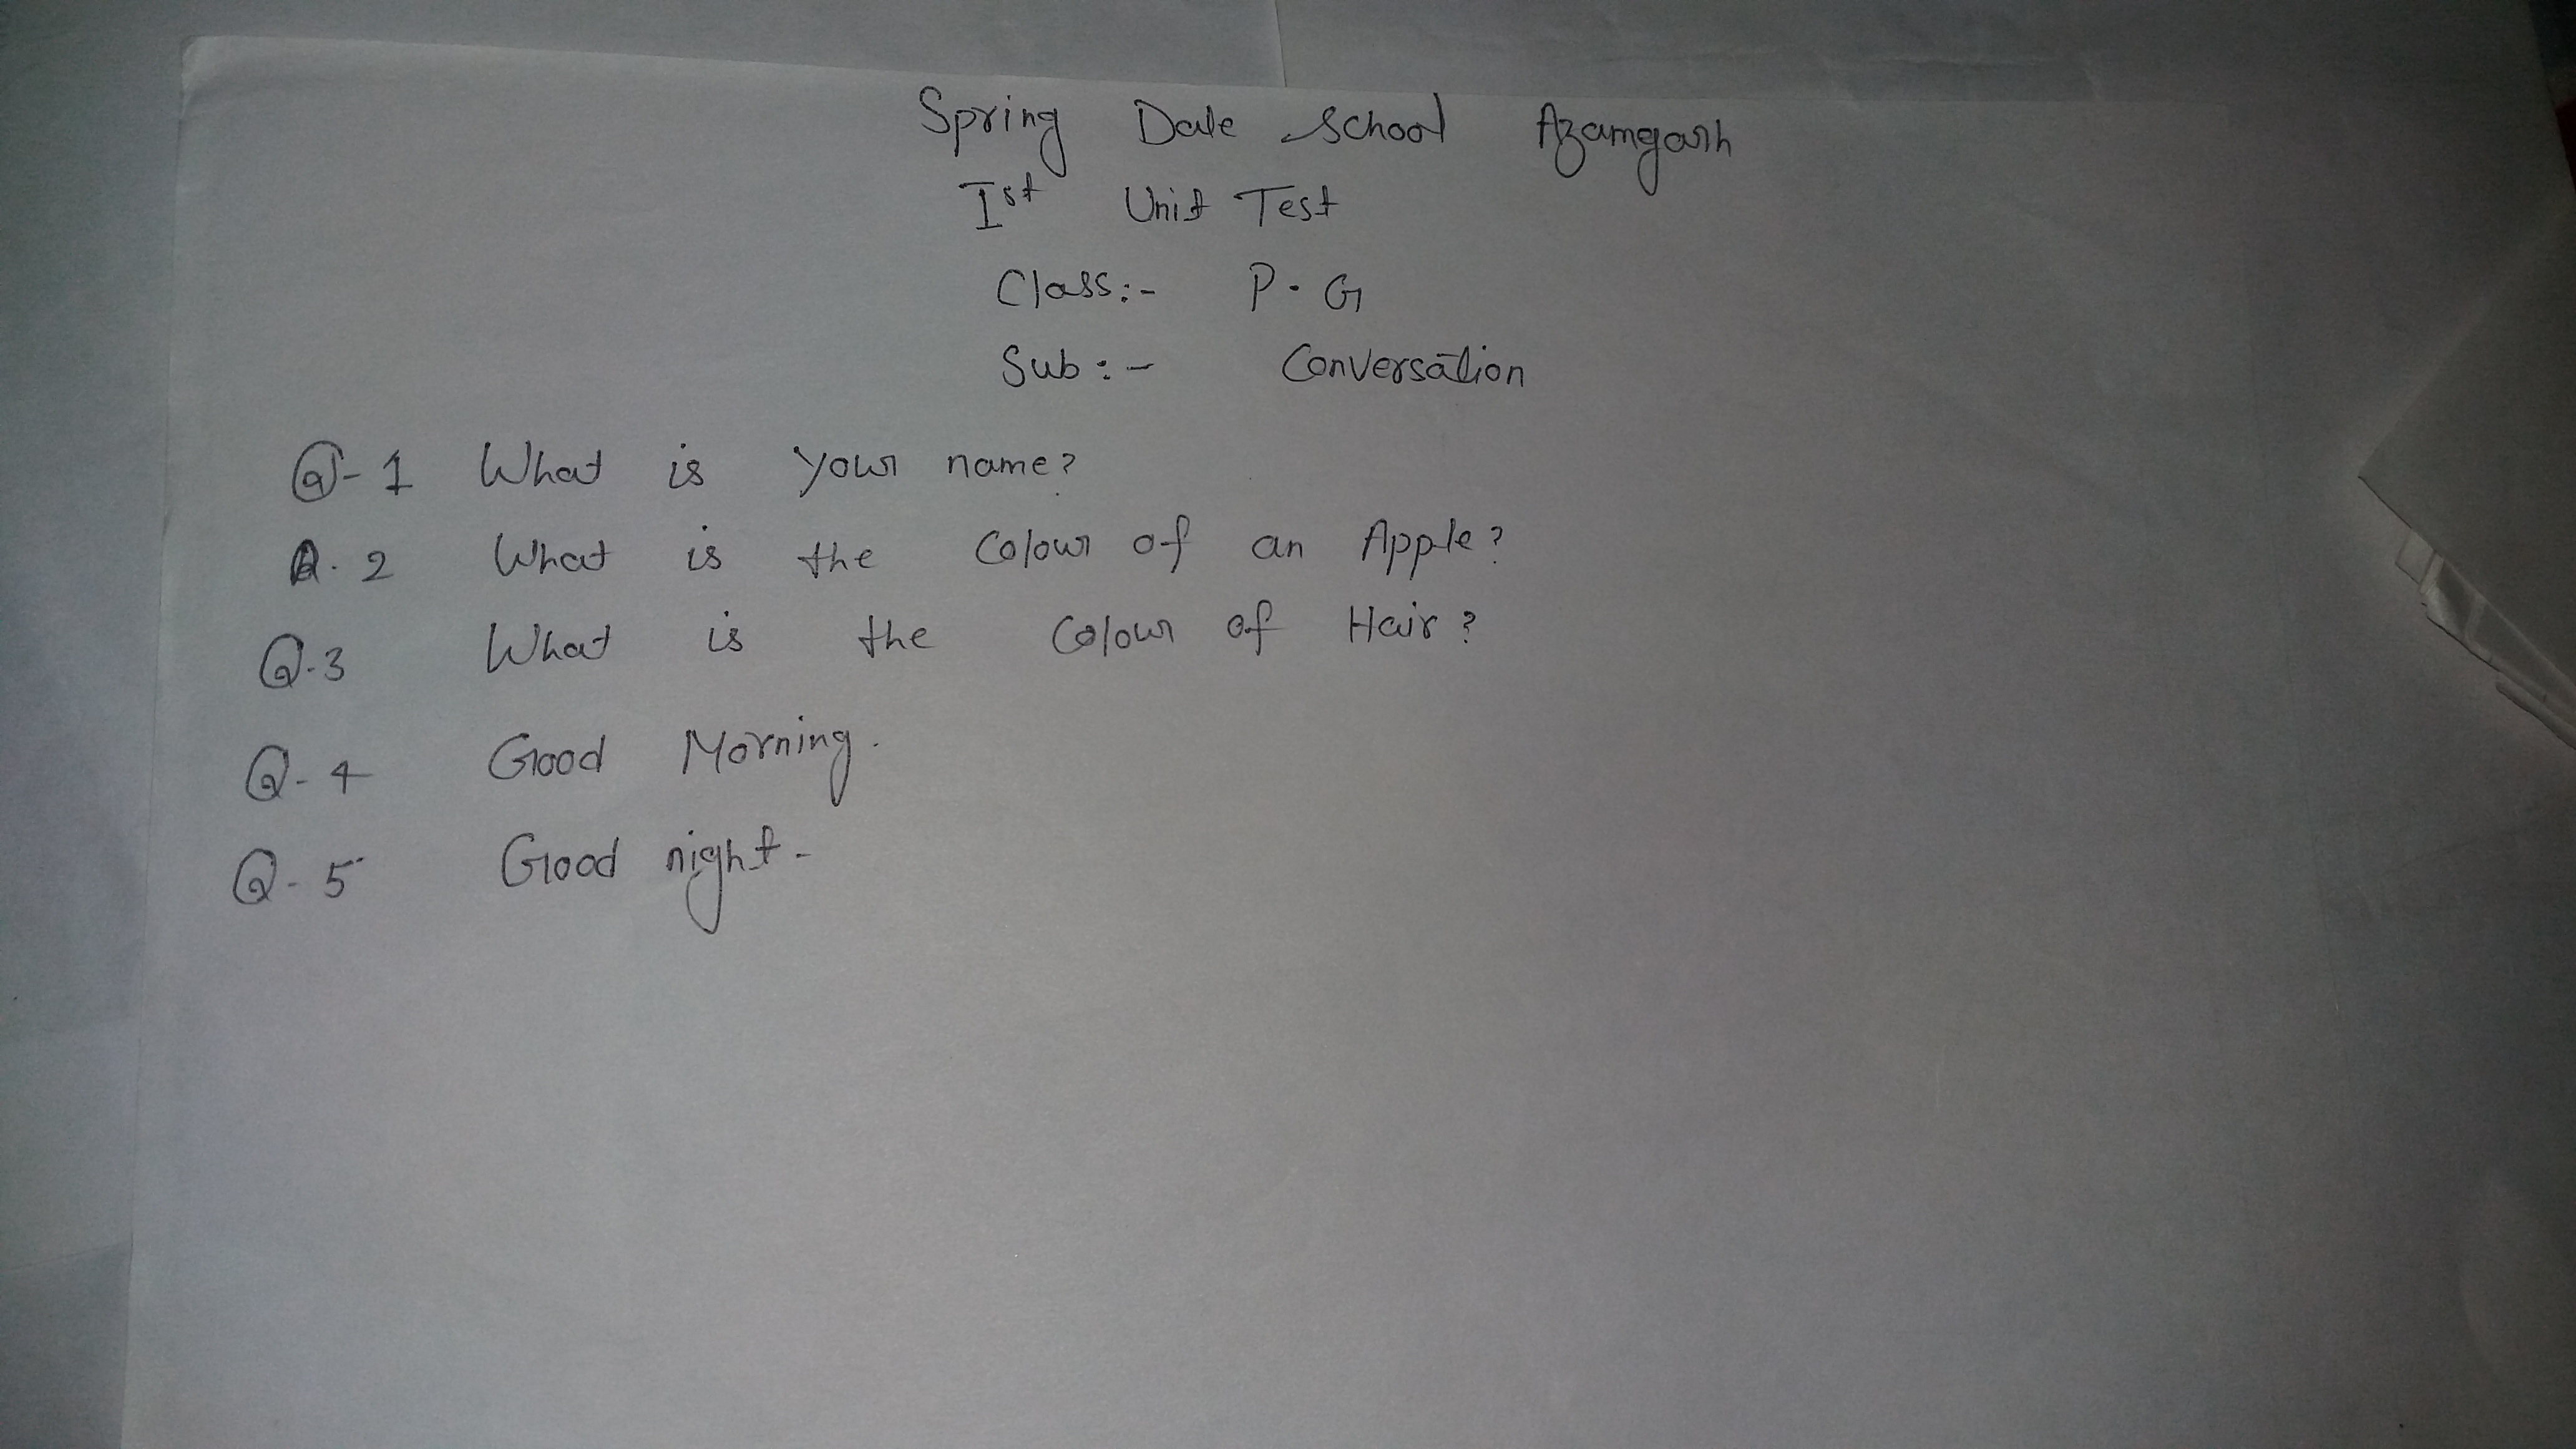 Spring Dale School Azamgarh
Ist Unit Test
Class:- P. G
Sub:- Conversation
Q-1 What is your name?
Q.2 What is the Colour of an Apple?
Q.3 What is the Colour of Hair?
Q-4 Good Morning.
Q-5 Good night-